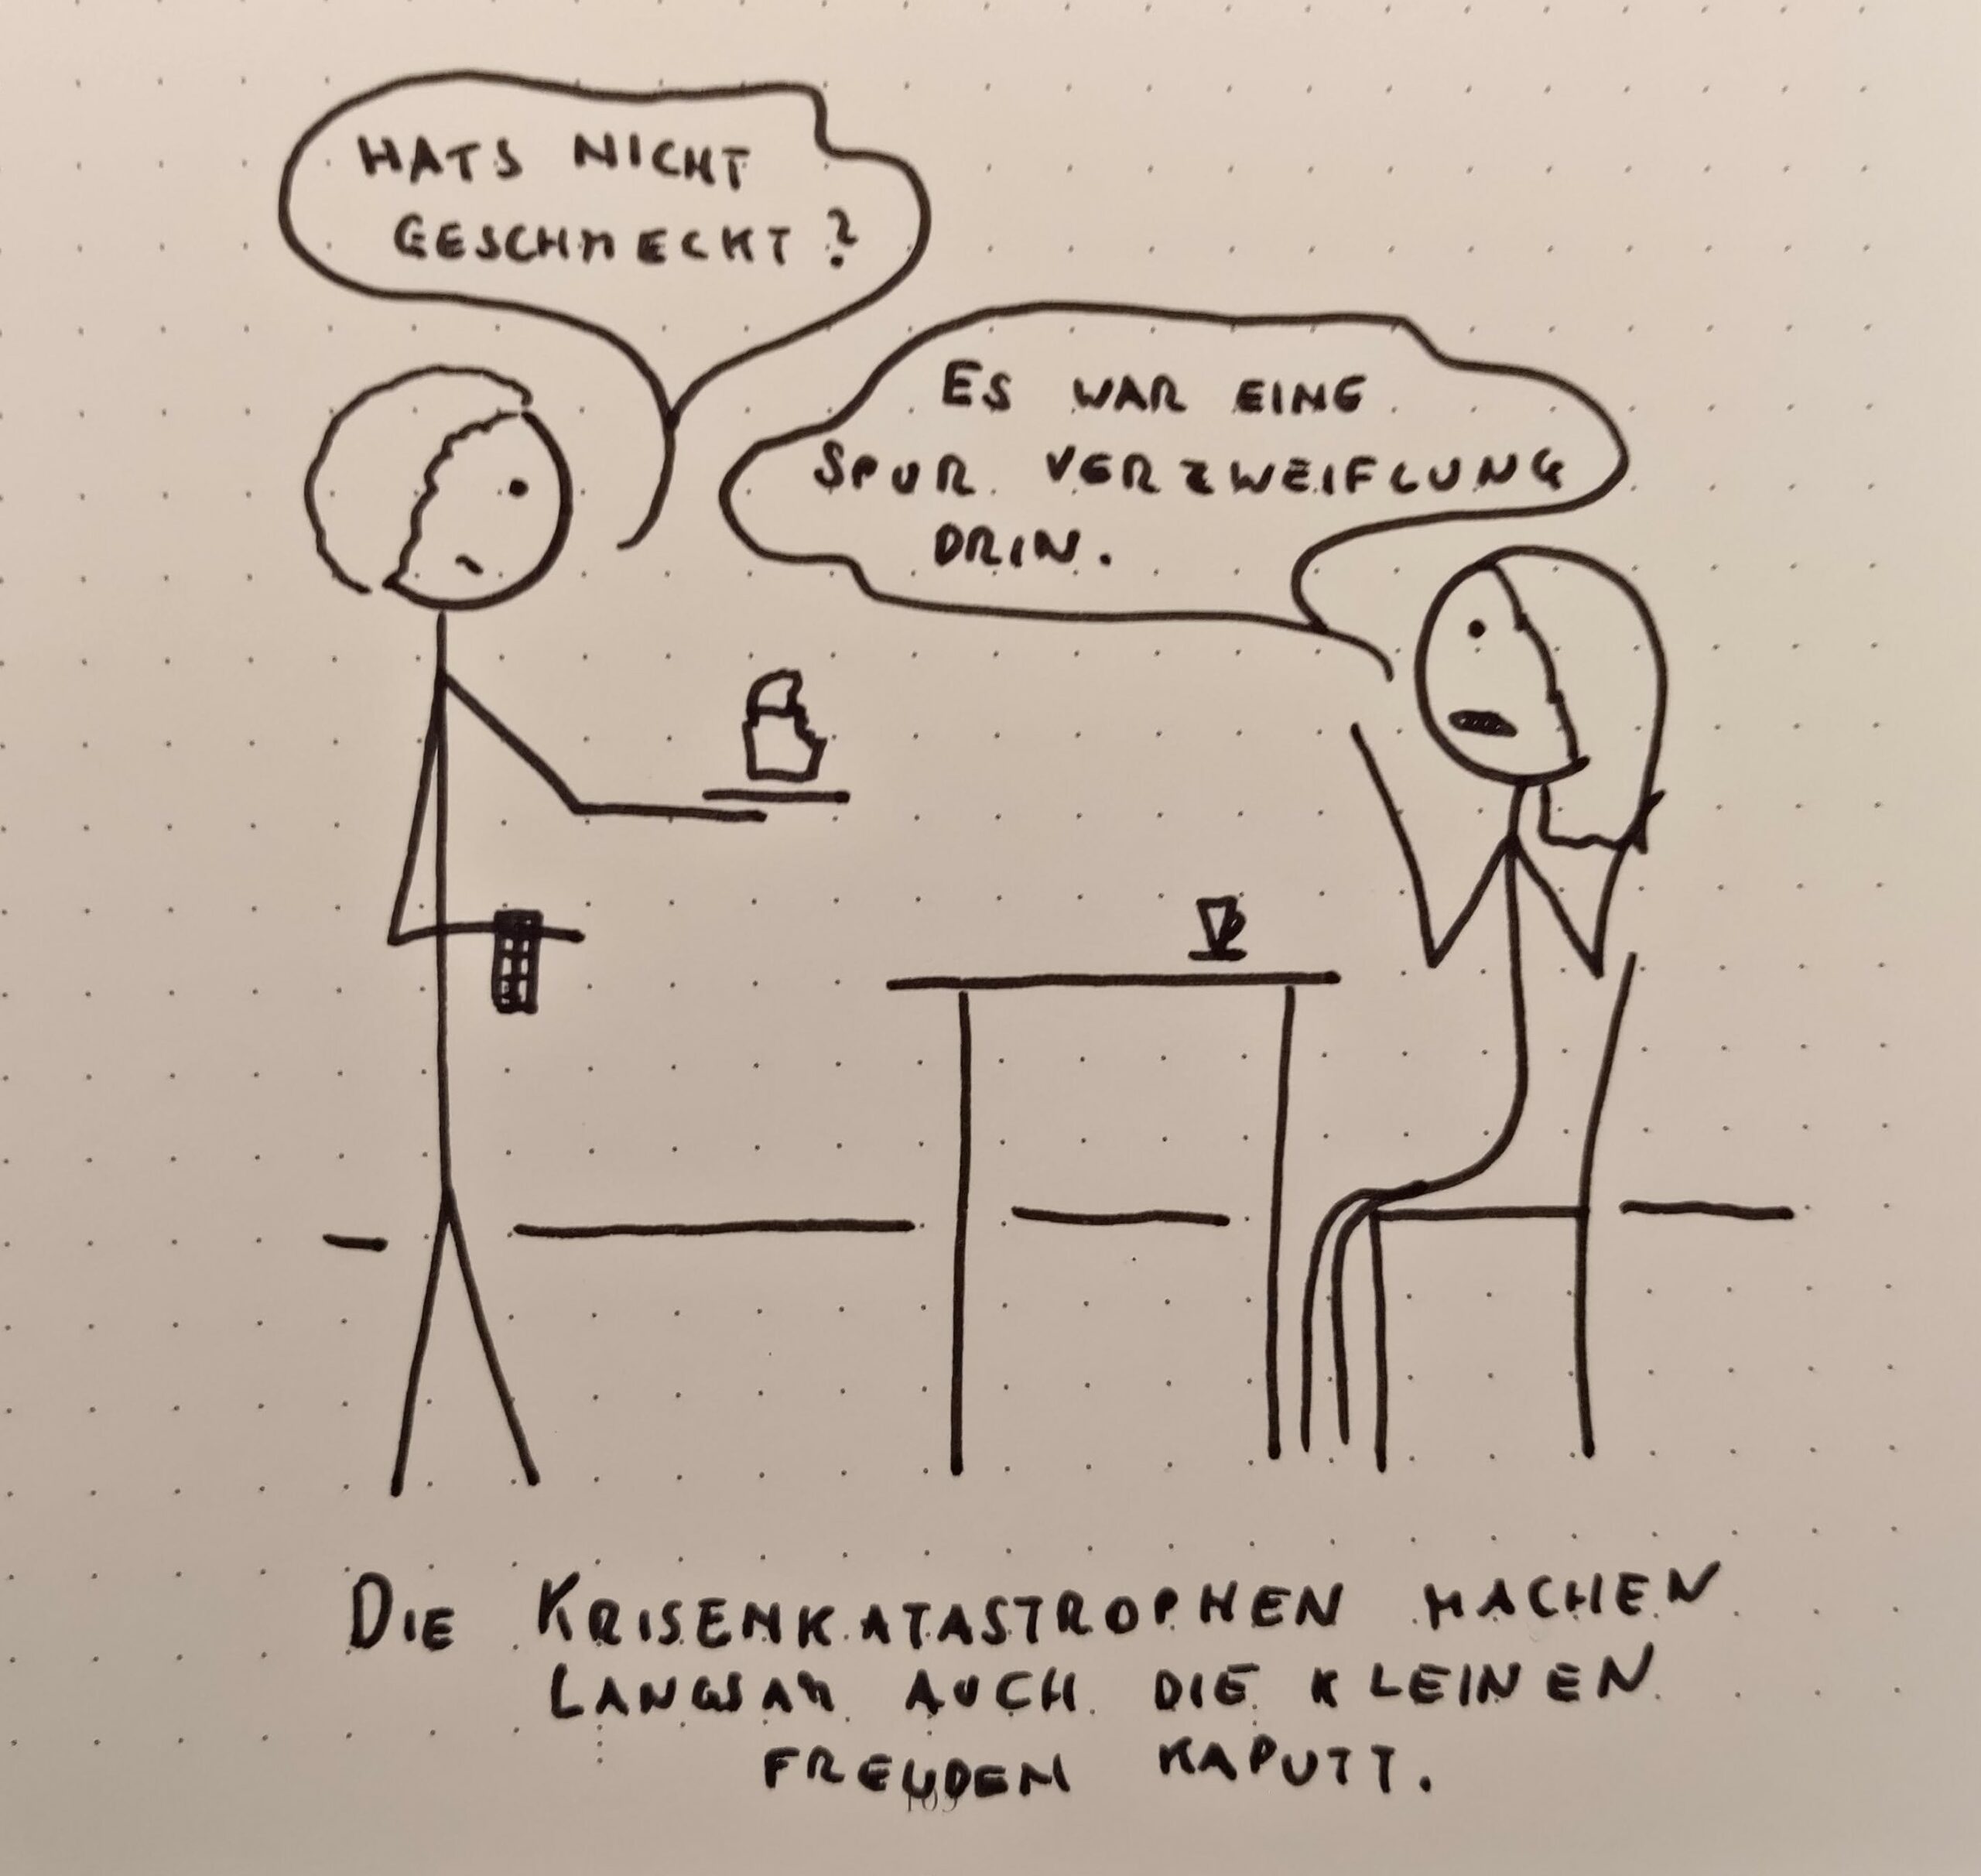 HATS NICHT
GESCHMECKT?
ES WAR EINE
SPUR VERZWEIFLUNG
DRIN.
DIE KRISENKATASTROPHEN MACHEN
LANGSAM AUCH DIE KLEINEN
FREUDEN KAPUTT.